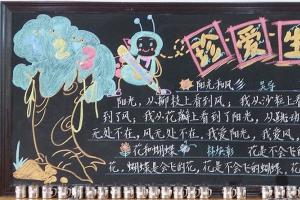 珍爱生
阳光和风
阳光，从柳枝上看到风，我从沙粒上看
到了风，我从花瓣上看到了阳光，从跳动
无处不在，风无处不在，我爱阳光，我爱风
花和蝴蝶
花是不会飞的
花，蝴蝶是会飞的花，花是不会飞的蝴蝶